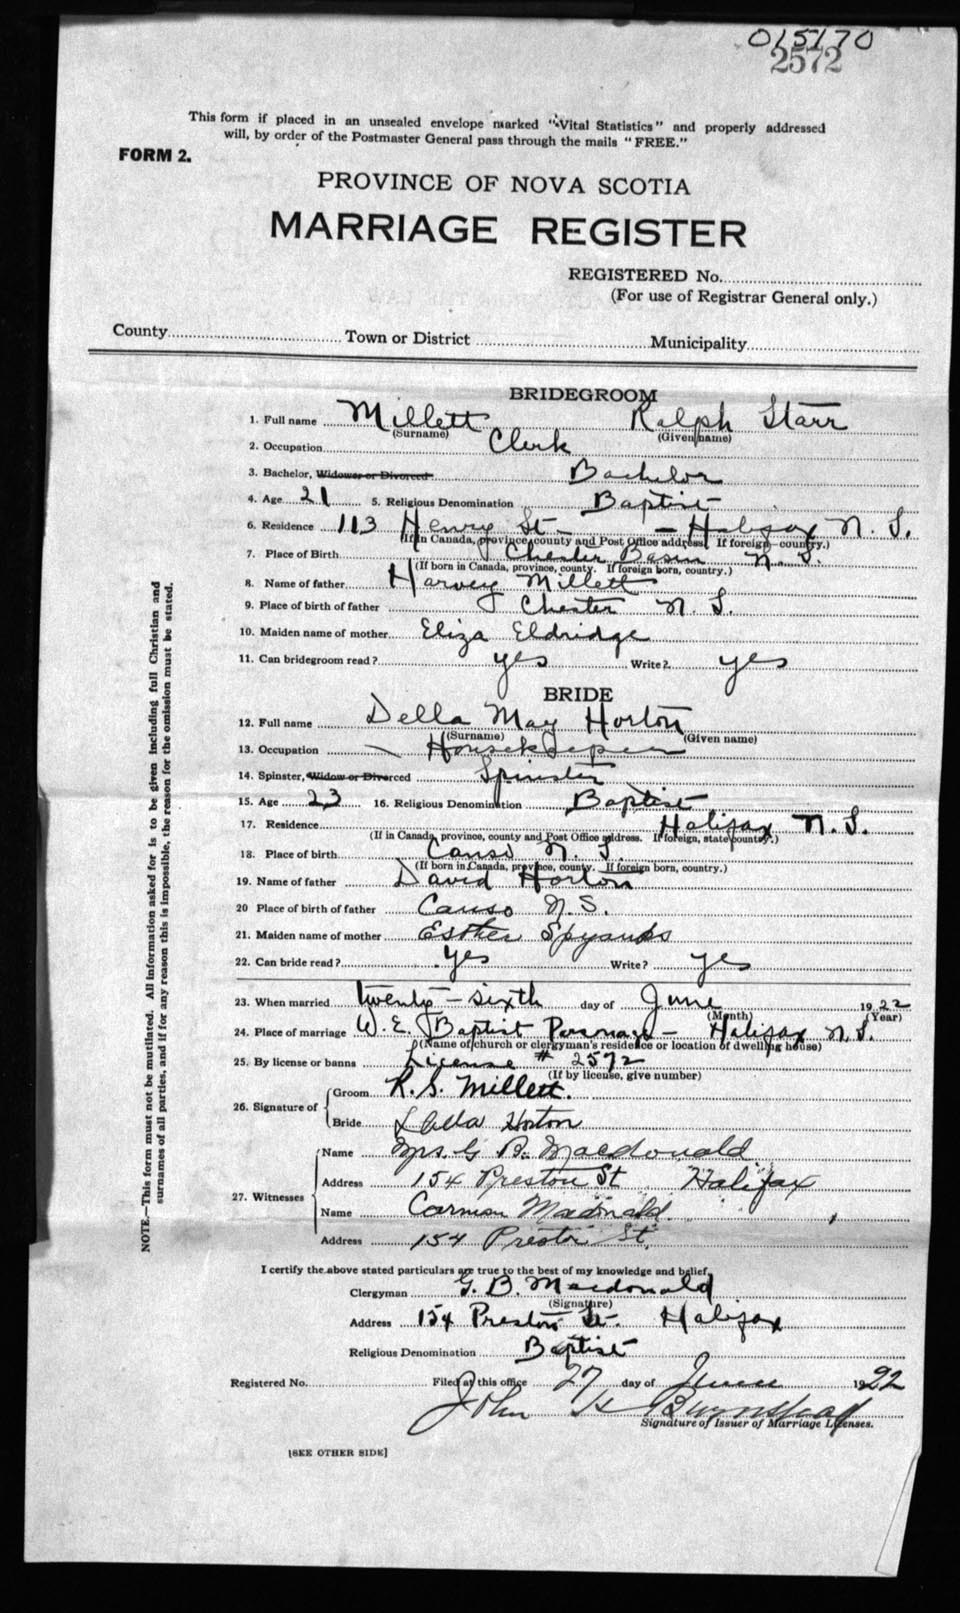 015170
2572
This form if placed in an unsealed envelope marked "Vital Statistics" and properly addressed
will, by order of the Postmaster General pass through the mails "FREE."
FORM 2.
PROVINCE OF NOVA SCOTIA
MARRIAGE REGISTER
REGISTERED No.
(For use of Registrar General only.)
County Town or District Municipality
BRIDEGROOM
1. Full name Millett Ralph Starr
(Surname) (Given name)
2. Occupation Clerk
3. Bachelor, Widower or Divorced Bachelor
4. Age 21 5. Religious Denomination Baptist
6. Residence 113 Henry St - Halifax N. S.
(If in Canada, province, county and Post Office address. If foreign country.)
7. Place of Birth Chester Basin N. S.
(If born in Canada, province, county. If foreign born, country.)
8. Name of father Harvey Millett
9. Place of birth of father Chester N. S.
10. Maiden name of mother Eliza Eldridge
11. Can bridegroom read? yes Write? yes
BRIDE
12. Full name Della May Horton
(Surname) (Given name)
13. Occupation Housekeeper
14. Spinster, Widow or Divorced Spinster
15. Age 23 16. Religious Denomination Baptist
17. Residence Halifax N. S.
(If in Canada, province, county and Post Office address. If foreign, state country.)
18. Place of birth Canso N. S.
(If born in Canada, province, county. If foreign born, country.)
19. Name of father David Horton
20 Place of birth of father Canso N. S.
21. Maiden name of mother Esther
22. Can bride read? Yes Write? yes
23. When married twenty-sixth day of June 1922
(Month) (Year)
24. Place of marriage W. E. Baptist Parsonage - Halifax N. S.
(Name of church or clergyman's residence or location of dwelling house)
25. By license or banns License # 2572
(If by license, give number)
26. Signature of Groom R. S. Millett.
Bride Della Horton
27. Witnesses Name Mrs. G. B. Macdonald
Address 154 Preston St Halifax
Name Carman Macdonald
Address 154 Preston St.
I certify the above stated particulars are true to the best of my knowledge and belief,
Clergyman G. B. Macdonald
(Signature)
Address 154 Preston St. Halifax
Religious Denomination Baptist
Registered No. Filed at this office 27 day of June 1922
John H
Signature of Issuer of Marriage Licenses.
[SEE OTHER SIDE]
NOTE.—This form must not be mutilated. All information asked for is to be given including full Christian and
surnames of all parties, and if for any reason this is impossible, the reason for the omission must be stated.